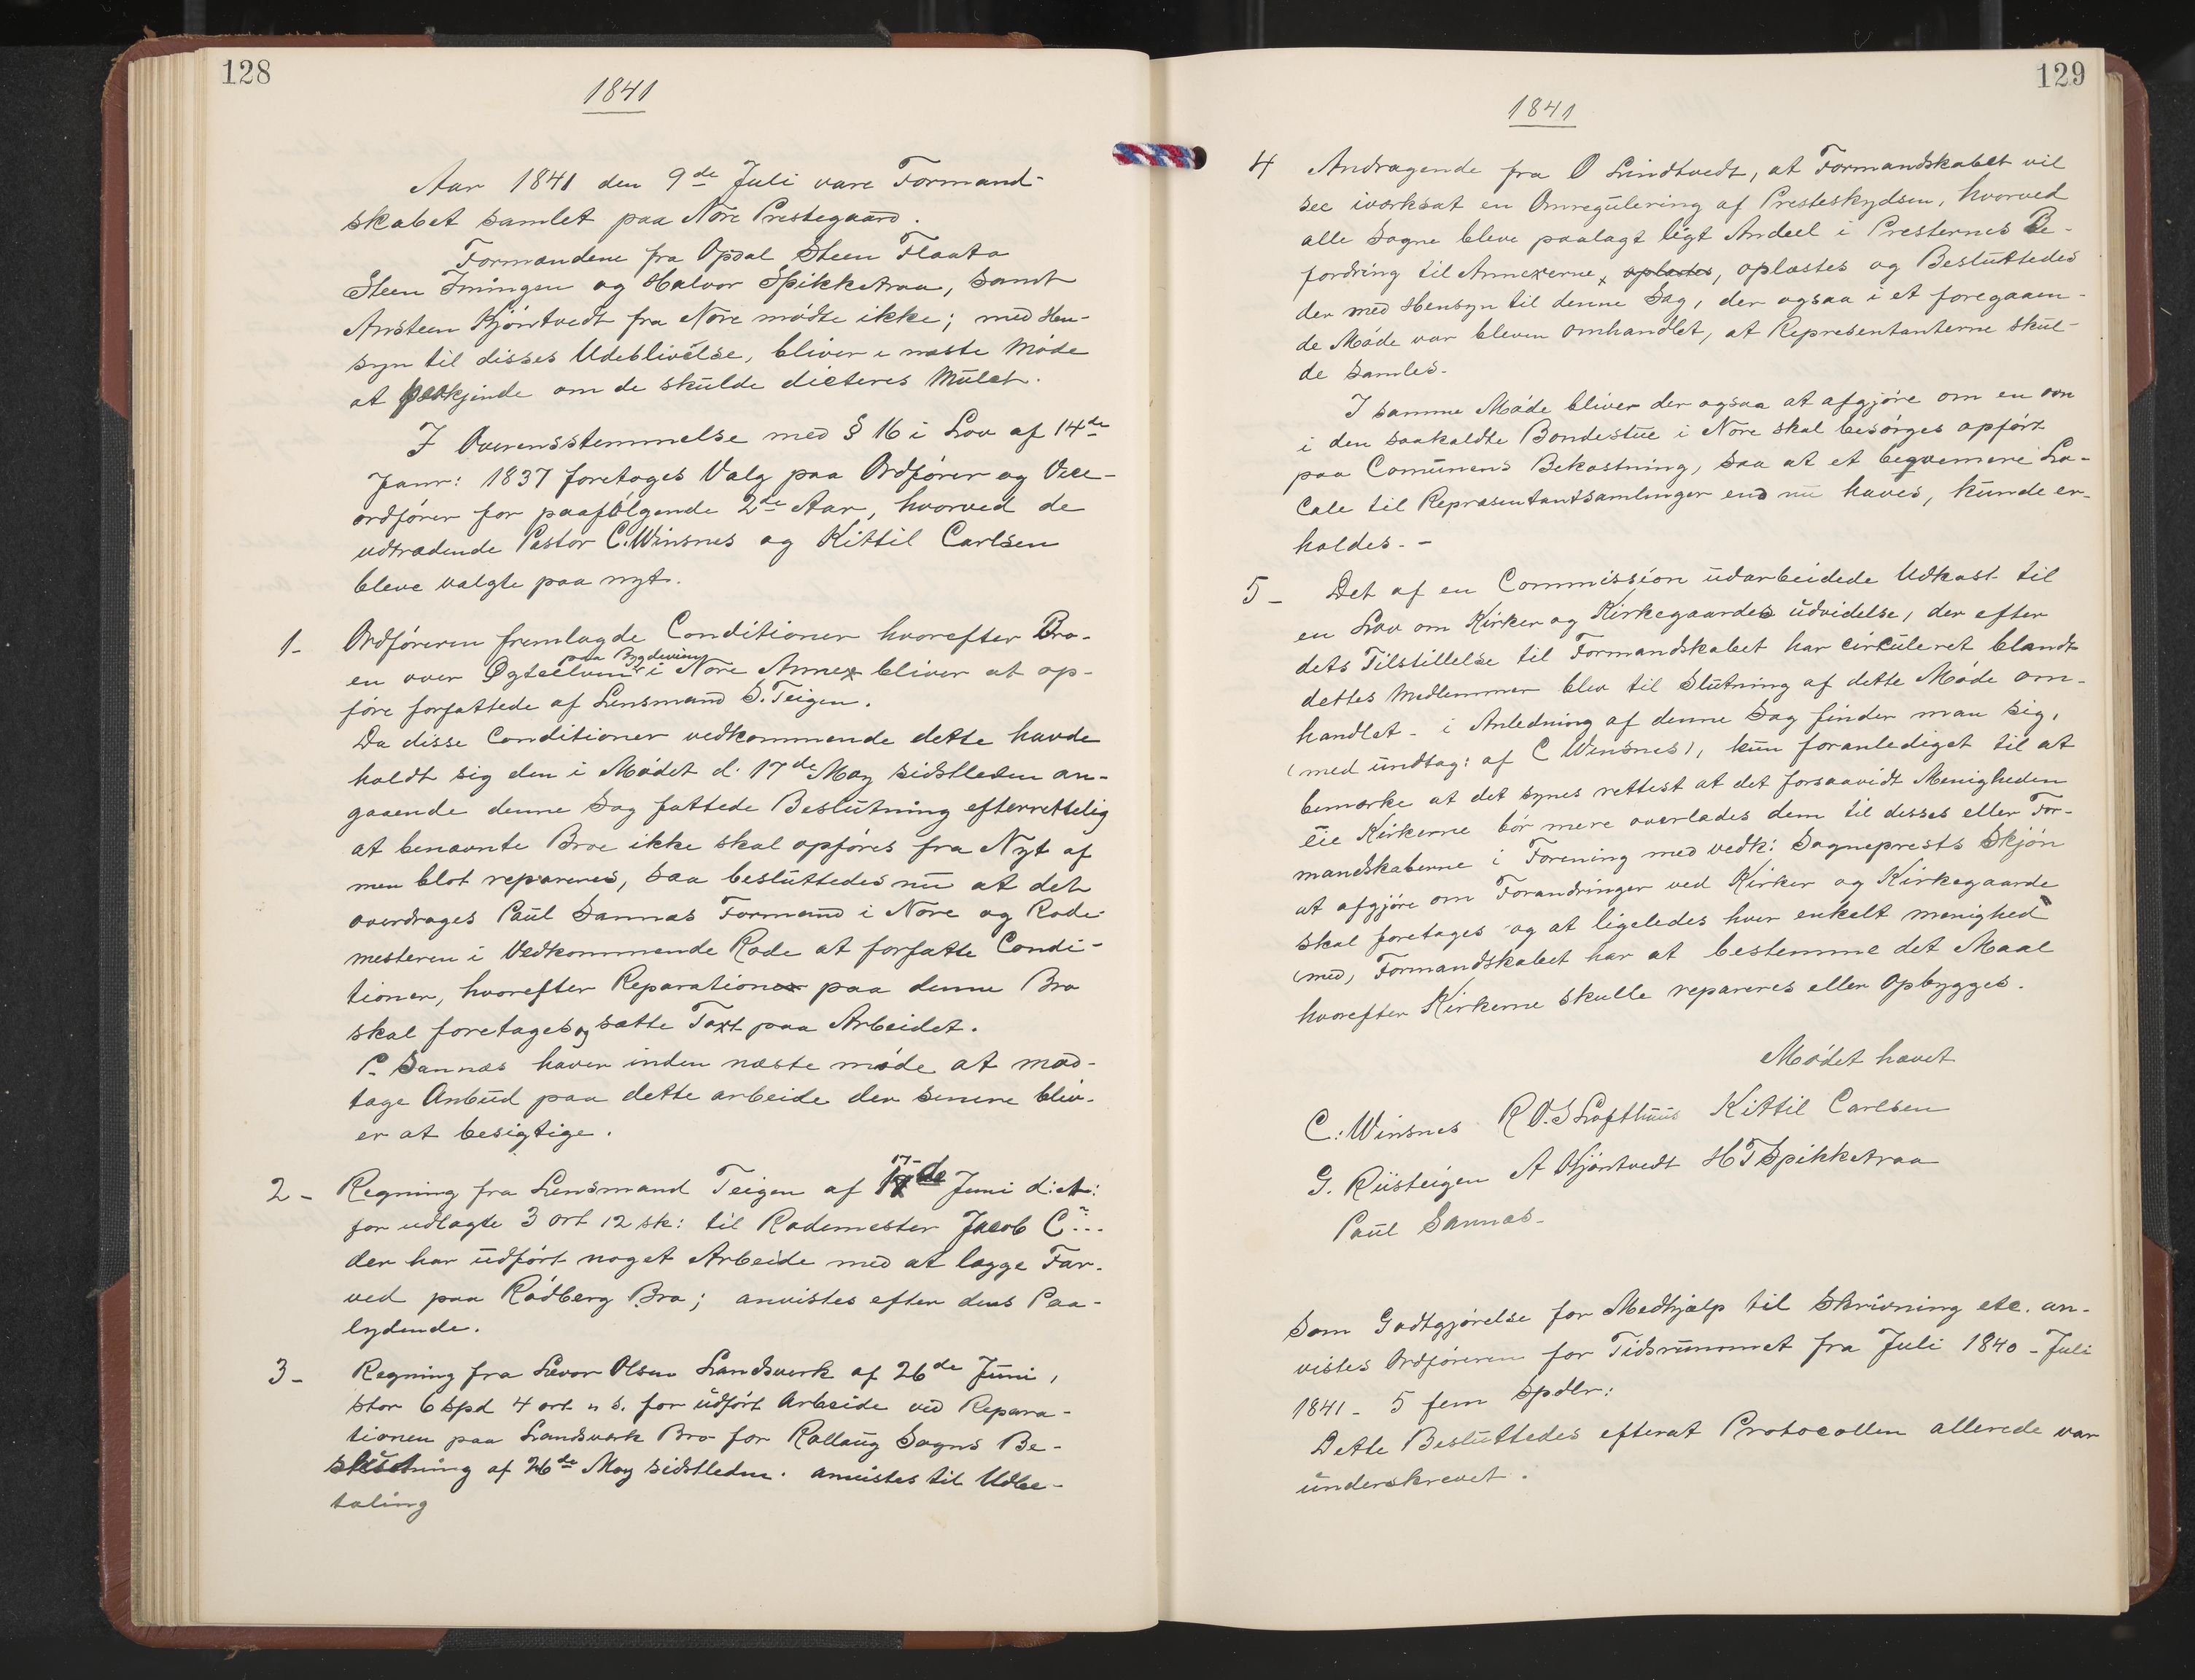 128
1841
Aar 1841 den 9de Juli vare Formand-
skabet samlet paa Nore Prestegaard.
Formændene fra Opdal Steen Flaata
Steen Imingen og Halvor Spikkeraa, samt
Ansteen Kjøntvedt fra Nore mødte ikke; med Hen-
syn til disses Udeblivelse, bliver i næste Møde
at paakjende om de skulde dicteres Mulct.
I Overensstemmelse med § 16 i Lov af 14de
Janr: 1837 foretoges Valg paa Ordfører og Vice-
ordfører for paafølgende 2de Aar, hvorved de
udtrædende Pastor C. Winsnes og Kittil Carlsen
bleve valgte paa nyt.
1- Ordføreren fremlagde Conditioner hvorefter Bro-
paa Bygdeveien
en over Øgteelven i Nore Annex bliver at op-
føre forfattede af Lensmand S. Teigen.
Da disse Conditioner vedkommende dette havde
holdt sig den i Mødet d. 17de May sidstleden an-
gaaende denne Sag fattede Beslutning efterrettelig
at benævnte Broe ikke skal opføres fra Nyt af
men blot repareres, saa besluttedes nu at det
overdrages Paul Sannæs Formand i Nore og Rode-
mesteren i Vedkommende Rode at forfatte Condi-
tioner, hvorefter Reparationer paa denne Bro
skal foretages og sætte Taxt paa Arbeidet.
P. Sannæs haver inden næste møde at mod-
tage Anbud paa dette arbeide der senere bliv-
er at besigtige.
2- Regning fra Lensmand Teigen af 17de Juni d: A:
for udlagte 3 ort 12 sk: til Rodemester Jacob C...
der har udført noget Arbeide med at lægge Far-
ved paa Rødberg Bro; anvistes efter dens Paa-
lydende.
3- Regning fra Levor Olsen Landsverk af 26de Juni,
stor 6 Spd 4 ort " s. for udført Arbeide ved Repara-
tionen paa Landsverk Bro for Rollaug Sogns Be-
slutning af 26de May sidstleden. anvistes til Udbe-
taling
129
1841
4 Andragende fra O Lindtvedt, at Formandskabet vil
see iværksat en Omregulering af Presteskydsen, hvorved
alle Sogne bleve paalagt ligt Andeel i Presternes Be-
fordring til Annexerne, oplæstes, oplæstes og Besluttedes
der med Hensyn til denne Sag, der ogsaa i et foregaaen-
de Møde var bleven omhandlet, at Representanterne skul-
de samles.
I samme Møde bliver der ogsaa at afgjøre om en ovn
i den saakaldte Bondestue i Nore skal besørges opført
paa Comunens Bekostning, saa at et beqvemere Lo-
cale til Repræsentantsamlinger end nu haves, kunde er-
holdes. -
5- Det af en Commission udarbeidede Udkast til
en Lov om Kirker og Kirkegaardes udvidelse, der efter
dets Tilstillelse til Formandskabet har circuleret blandt
dettes Medlemmer blev til Slutning af dette Møde om-
handlet - i Anledning af denne Sag finder man sig,
(med undtag: af C Winsnes), kun foranlediget til at
bemærke at det synes rettest at det forsaavidt Menigheden
eie Kirkerne bør mere overlades dem til disses eller For-
mandskaberne i Forening med vedk: Sogneprests Skjøn
at afgjøre om Forandringer ved Kirker og Kirkegaarde
skal foretages og at ligeledes hver enkelt menighed
(med) Formandskabet har at bestemme det Maal
hvorefter Kirkerne skulle repareres eller Opbygges.
Mødet hævet
C: Winsnes R O. S Lofthuus Kittil Carlsen
G. Riisteigen A Kjøntvedt H T Spikkeraa
Paul Sannæs-
Som Godtgjørelse for Medhjælp til Skrivning etc. an-
vistes Ordføreren for Tidsrummet fra Juli 1840 - Juli
1841 - 5 fem Spdlr:
Dette Besluttedes efterat Protocollen allerede var
underskrevet.